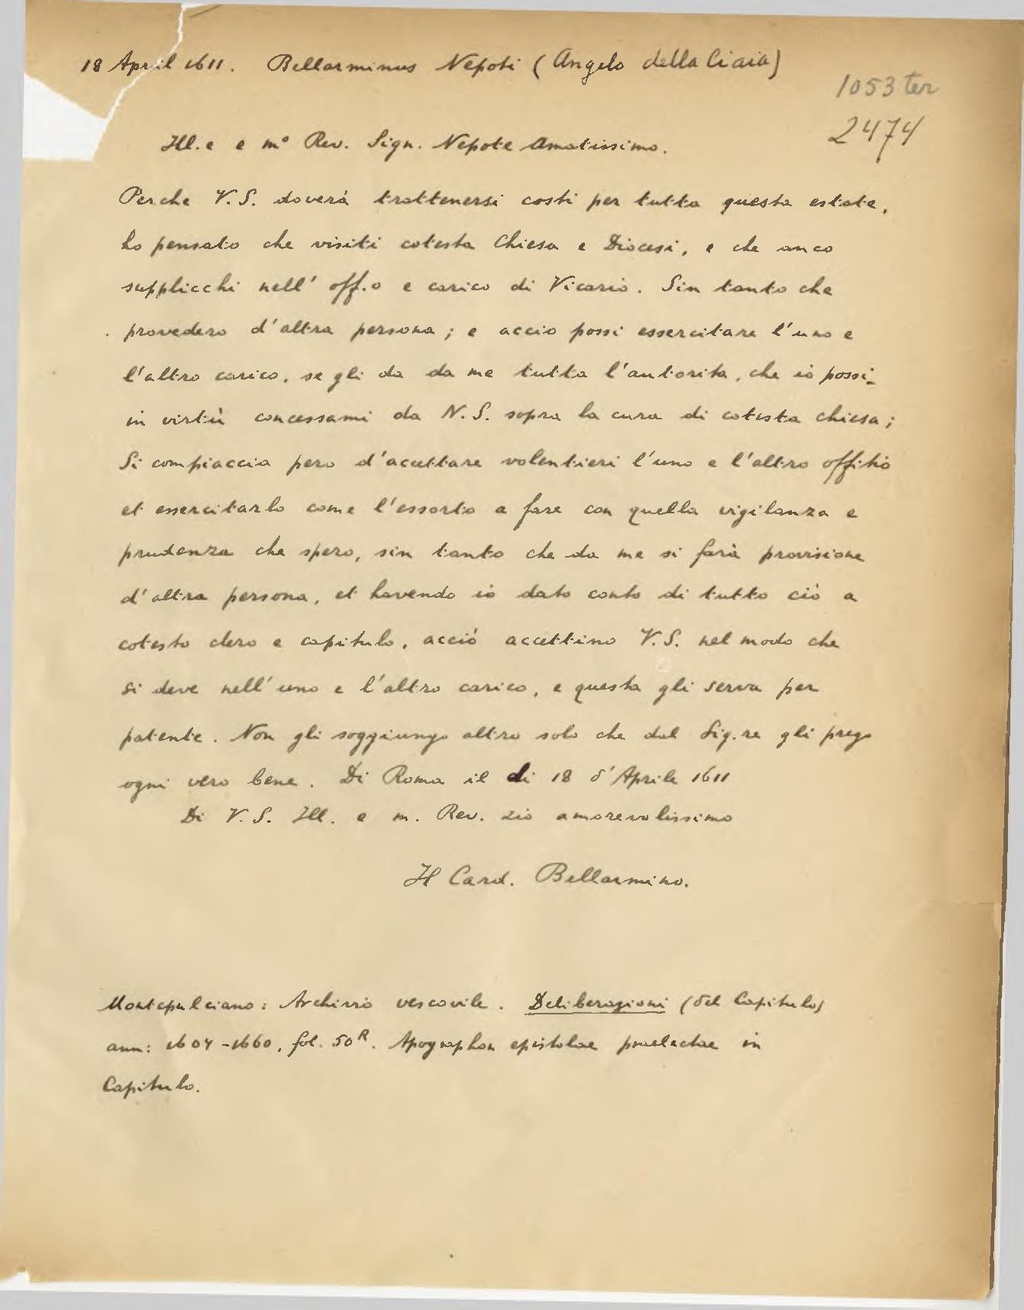 18 April 1611. Bellarminus Nepoti (Angelo della Ciaia)
1053 ter
2474
Ill.e e m° Rev. Sign. Nepote Amatissimo.
Perche V.S. doverà trattenersi costi per tutta questa estate,
ho pensato che visiti cotesta Chiesa e Diocesi, e che anco
supplicchi nell' off.o e carico di Vicario. Sin tanto che
provedero d'altra persona; e accio possi essercitare l'uno e
l'altro carico, se gli da da me tutta l'autorita, che io possi_
in virtù concessami da N.S. sopra la cura di cotesta chiesa;
Si compiaccia pero d'accettare volentieri l'uno e l'altro offitio
et essercitarlo come l'essorto a fare con quella vigilanza e
prudenza che spero, sin tanto che da me si farà provisione
d'altra persona, et havendo io dato conto di tutto ciò a
cotesto clero e capitulo, acciò accettino V.S. nel modo che
si deve nell'uno e l'altro carico, e questa gli serva per
patente. Non gli soggiungo altro solo che dal Sig.re gli prego
ogni vero bene. Di Roma il di 18 d'Aprile 1611
Di V.S. Ill. e m. Rev. zio amorevolissimo
Il Card. Bellarmino.
Montepulciano: Archivio vescovile. Deliberazioni (del Capitulo)
ann: 1604-1660, fol. 50R. Apographon epistolae praelectae in
Capitulo.